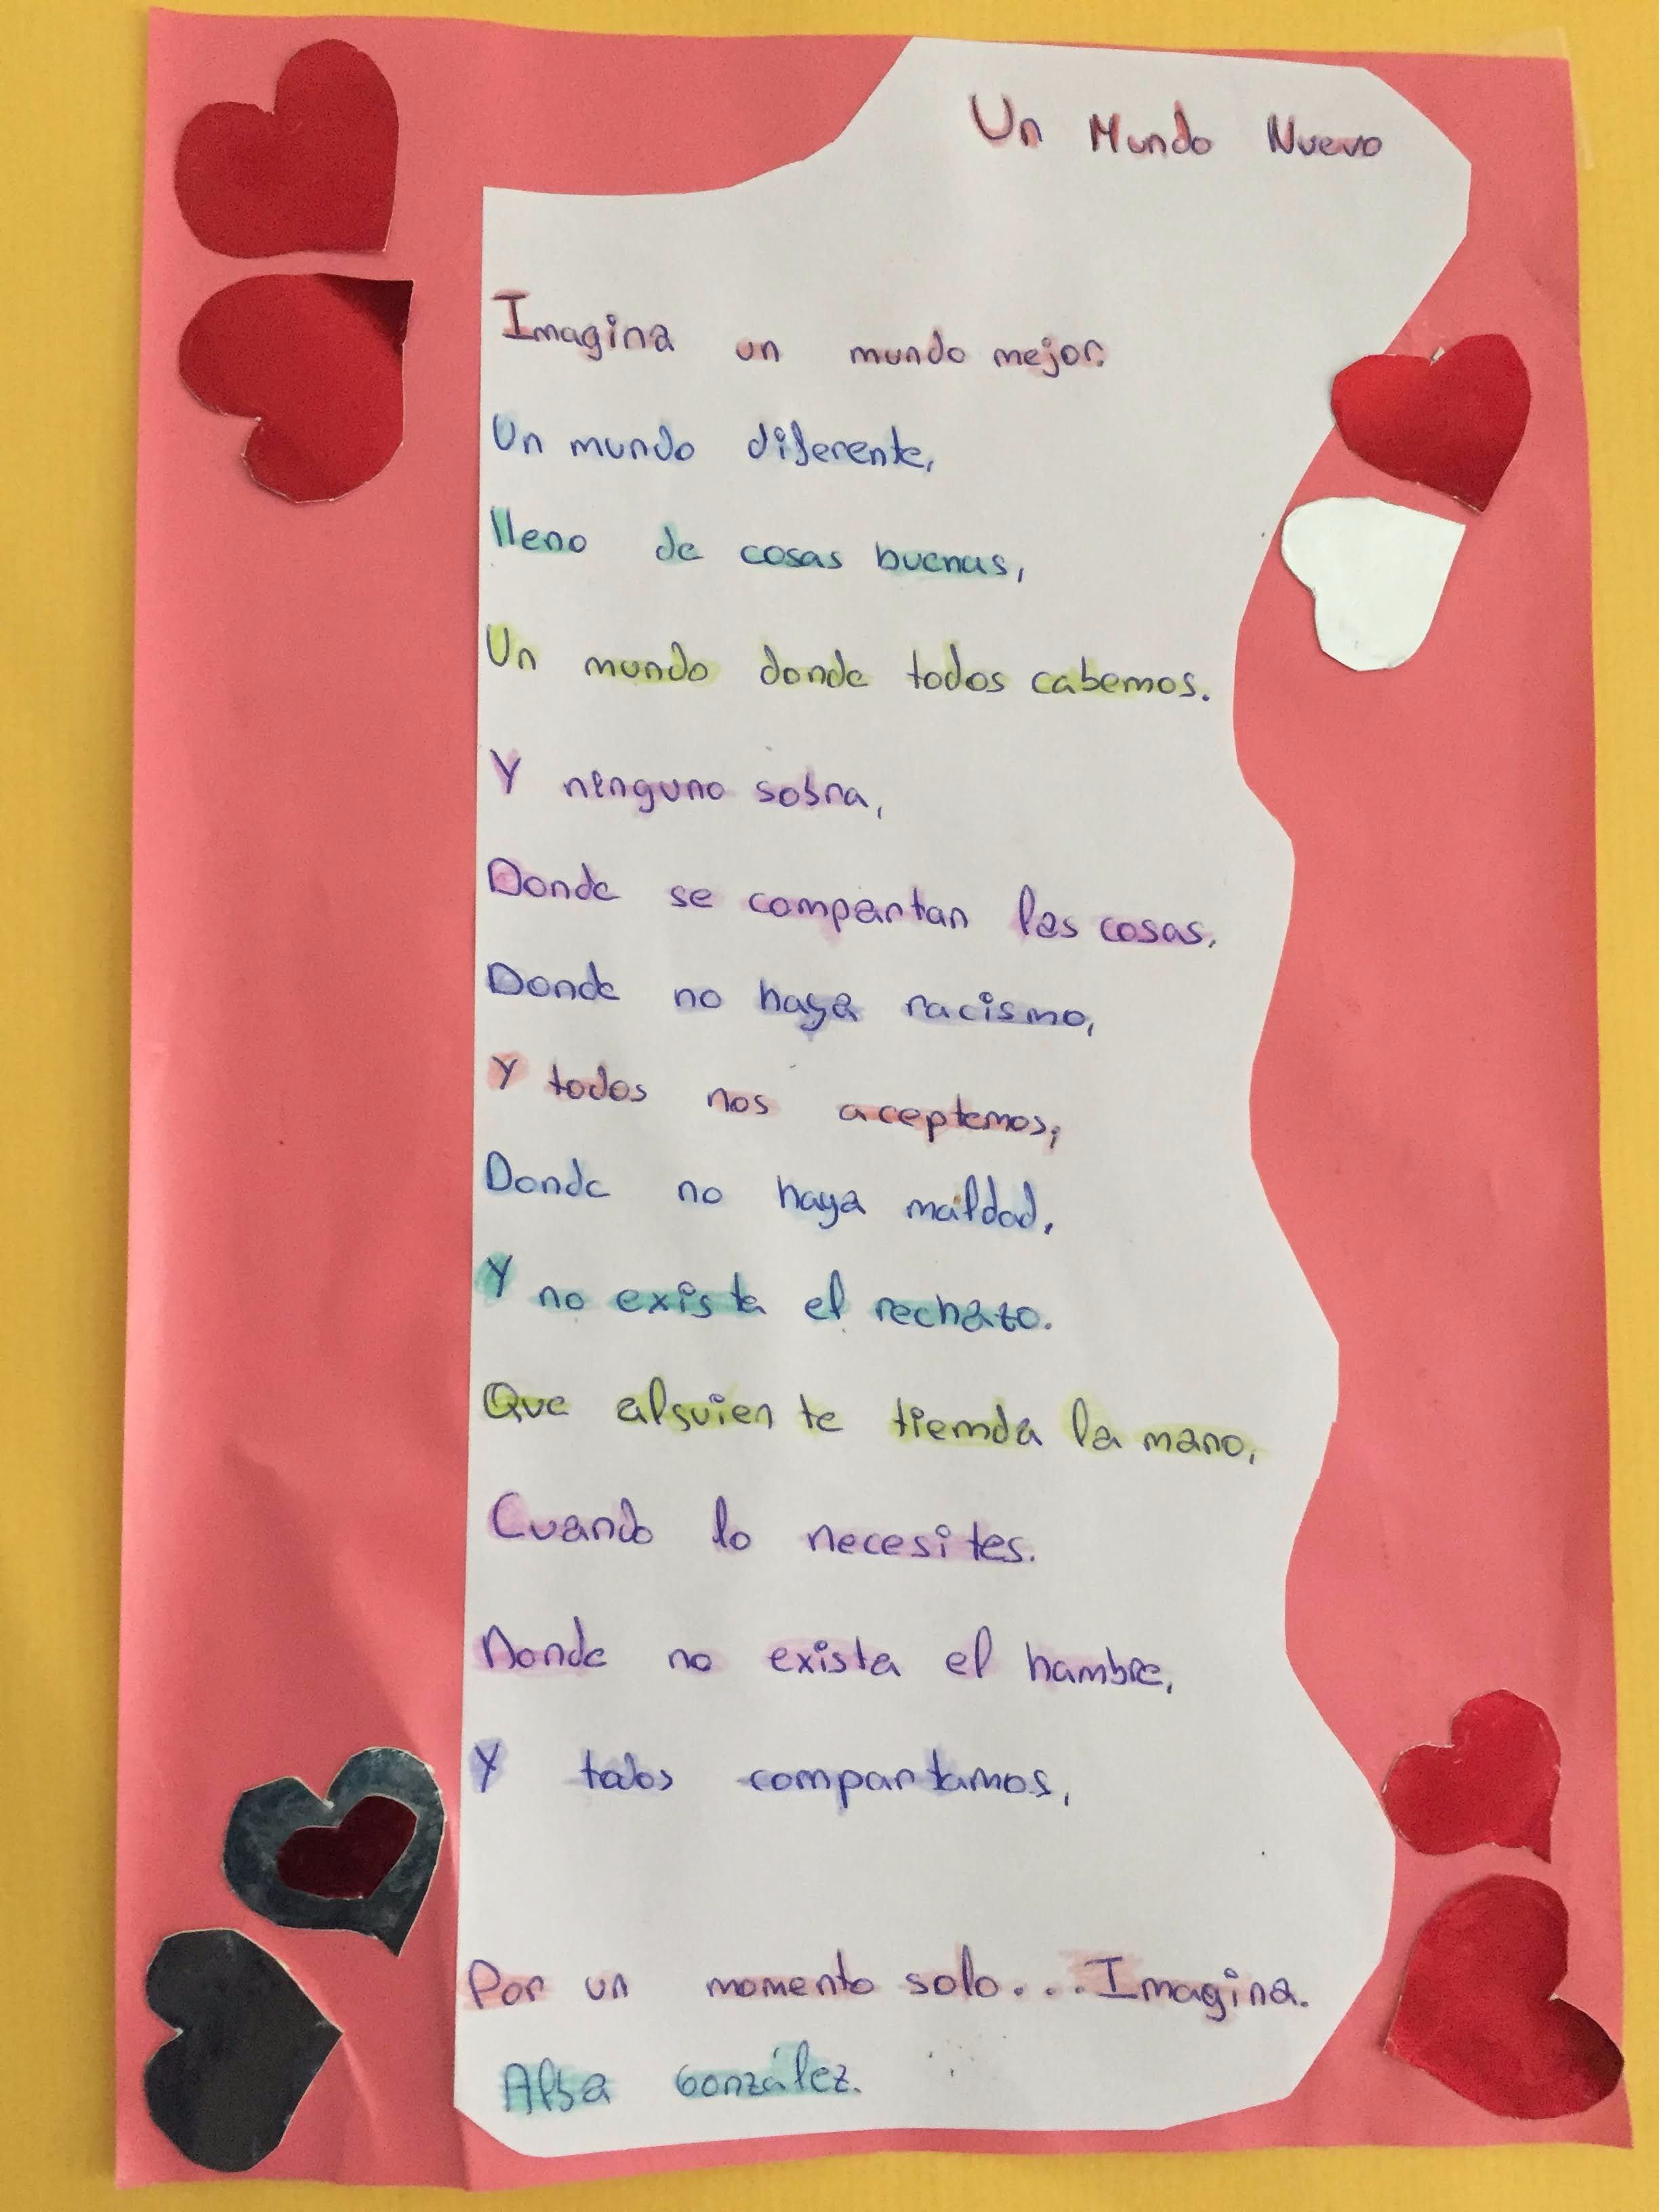 Un Mundo Nuevo
Imagina un mundo mejor.
Un mundo diferente,
lleno de cosas buenas,
Un mundo donde todos cabemos.
Y ninguno sobra,
Donde se compartan las cosas,
Donde no haya racismo,
Y todos nos aceptemos,
Donde no haya maldad,
Y no exista el rechazo.
Que alguien te tienda la mano,
Cuando lo necesites.
Donde no exista el hambre,
Y todos compartamos,
Por un momento solo...Imagina.
Alba González.